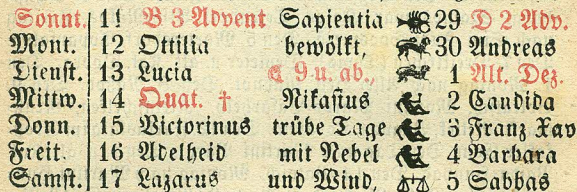 Sonnt. 11 B 3 Advent Sapientia 29 D 2 Adv.
Mont. 12 Ottilia bewölkt, 30 Andreas
Dienst. 13 Lucia ☾ 9 u. ab., 1 Alt. Dez.
Mittw. 14 Quat. † Nikasius 2 Candida
Donn. 15 Victorinus trübe Tage 3 Franz Xav
Freit. 16 Adelheid mit Nebel 4 Barbara
Samst. 17 Lazarus und Wind, 5 Sabbas